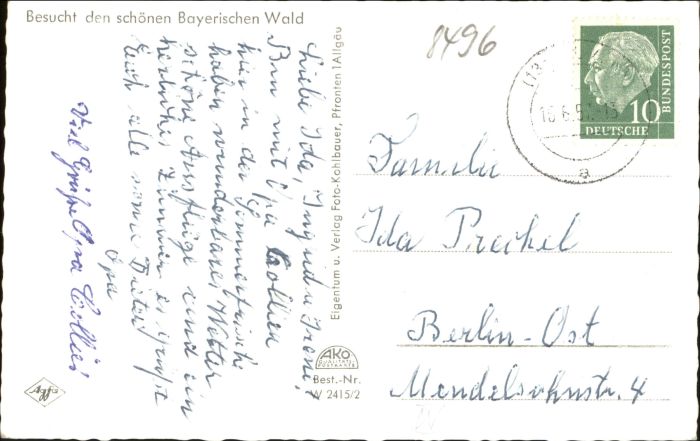 Besucht den schönen Bayerischen Wald
8496
Liebe Ida, Ingrid u Irene!
Bin mit Opa Collien
hier in der Sommerfrische
haben wunderbares Wetter
schöne Ausflüge und ein
herrliches Zimmer es grüßt
Euch alle
Opa
Viel Grüße Opa Collien
Eigentum u. Verlag Foto-Kohlbauer, Pfronten 1Allgäu
AKO
QUALITÄTS-
POSTKARTE
Best.-Nr.
W 2415/2
Agfa
10
DEUTSCHE
BUNDESPOST
(13
a
Familie
Ida Preckel
Berlin-Ost
Mendelsohnstr. 4